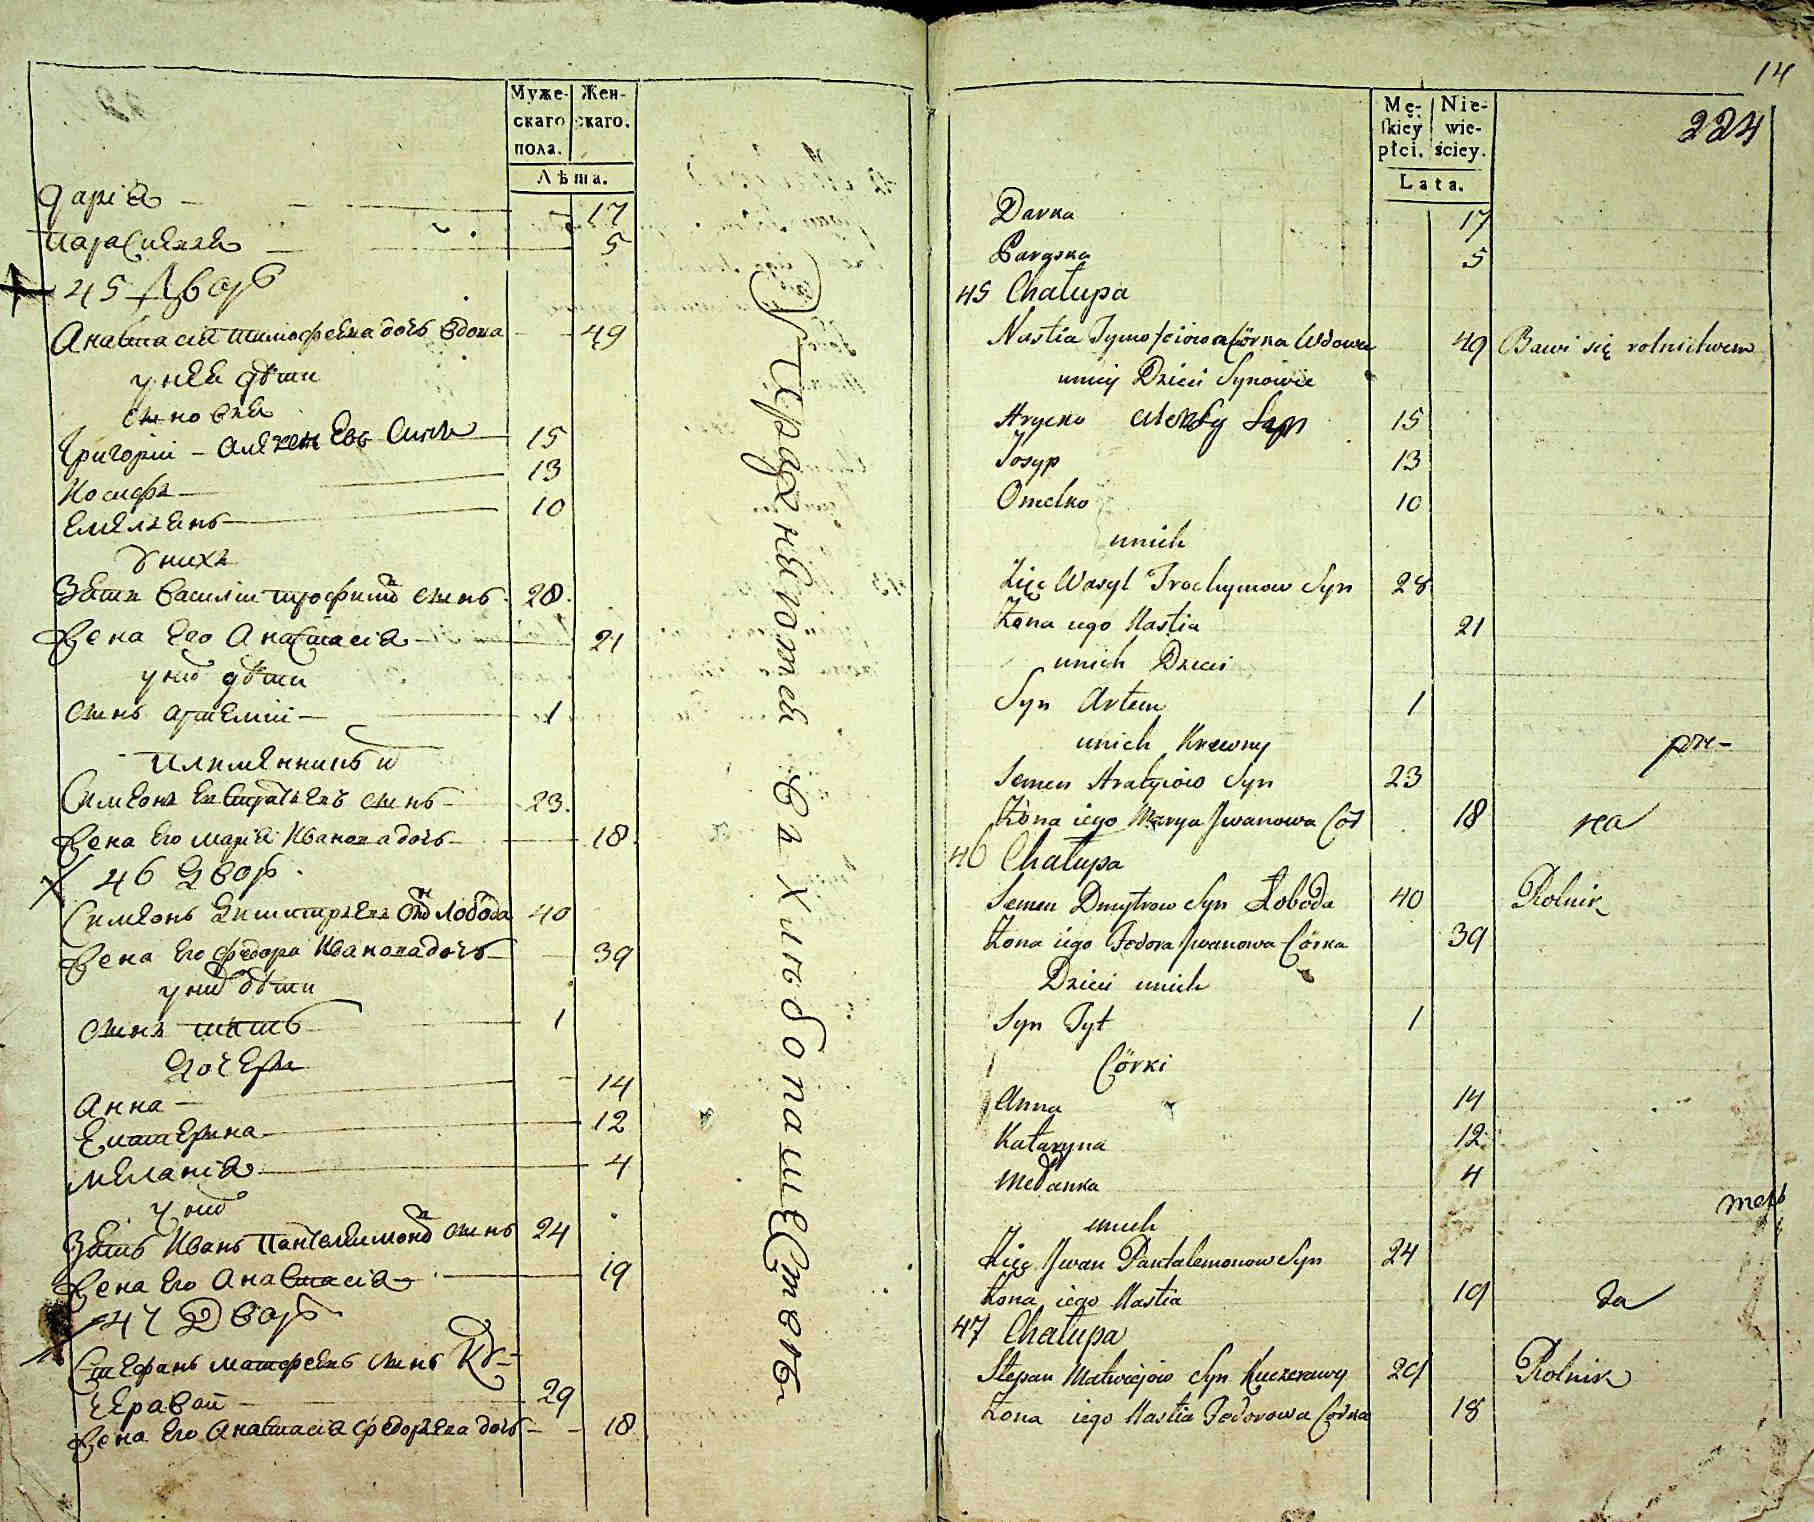 Муже-
скаго
пола.
Жен-
скаго.
Лѣта.
Дарія 17
Параскевія 5
45 Дворъ
Анастасія Тимофеева дочь вдова 49
у нея дѣти
сыновья
Григорій - Алексеевъ сынъ 15
Иосифъ 13
Емеліянъ 10
У нихъ
Зять Василій Трофимовъ сынъ 28.
Жена Его Анастасія 21
у нихъ дѣти
сынъ Артемій 1
племянникъ ихъ
Симеонъ сынъ 23.
Жена Его Марія Иванова дочь 18.
46 Дворъ
Симеонъ Димитріевъ сынъ Лобода 40
Жена Его Федора Иванова дочь 39
у нихъ дѣти
сынъ Титъ 1
Дочери
Анна 14
Екатерина 12
Меланія 4
у нихъ
Зять Иванъ Пантелимоновъ сынъ 24
Жена Его Анастасія 19
47 Дворъ
Стефанъ Матфеевъ сынъ Ку-
черавой 29
Жена Его Анастасія Федорова дочь 18
Упражняются въ хлебопашестве
14
224
Mę-
skiey
płci.
Nie-
wie-
ściey.
Lata.
Darka 17
Paraska 5
45 Chałupa
Nastia Tymofiiowa Córka Wdowa 49 Bawi się rolnictwem
u niey Dzieci Synowie
Hrycko Syn 15
Josyp 13
Omelko 10
u nich
Zięć Wasyl Trochymow Syn 28
Żona iego Nastia 21
u nich Dzieci
Syn Artem 1
u nich Krewny
Semen Syn 23
Żona iego Marya Jwanowa Cór 18
46 Chałupa
Semen Dmytrow Syn Łoboda 40 Rolnik
Żona iego Fedora Jwanowa Córka 39
Dzieci u nich
Syn Tyt 1
Córki
Anna 14
Kataryna 12
Mełanka 4
u nich
Zięć Jwan Pantalemonow Syn 24
Żona iego Nastia 19
47 Chałupa
Stepan Matwiejow Syn Kuczerawy 29 Rolnik
Żona iego Nastia Fedorowa Córka 18